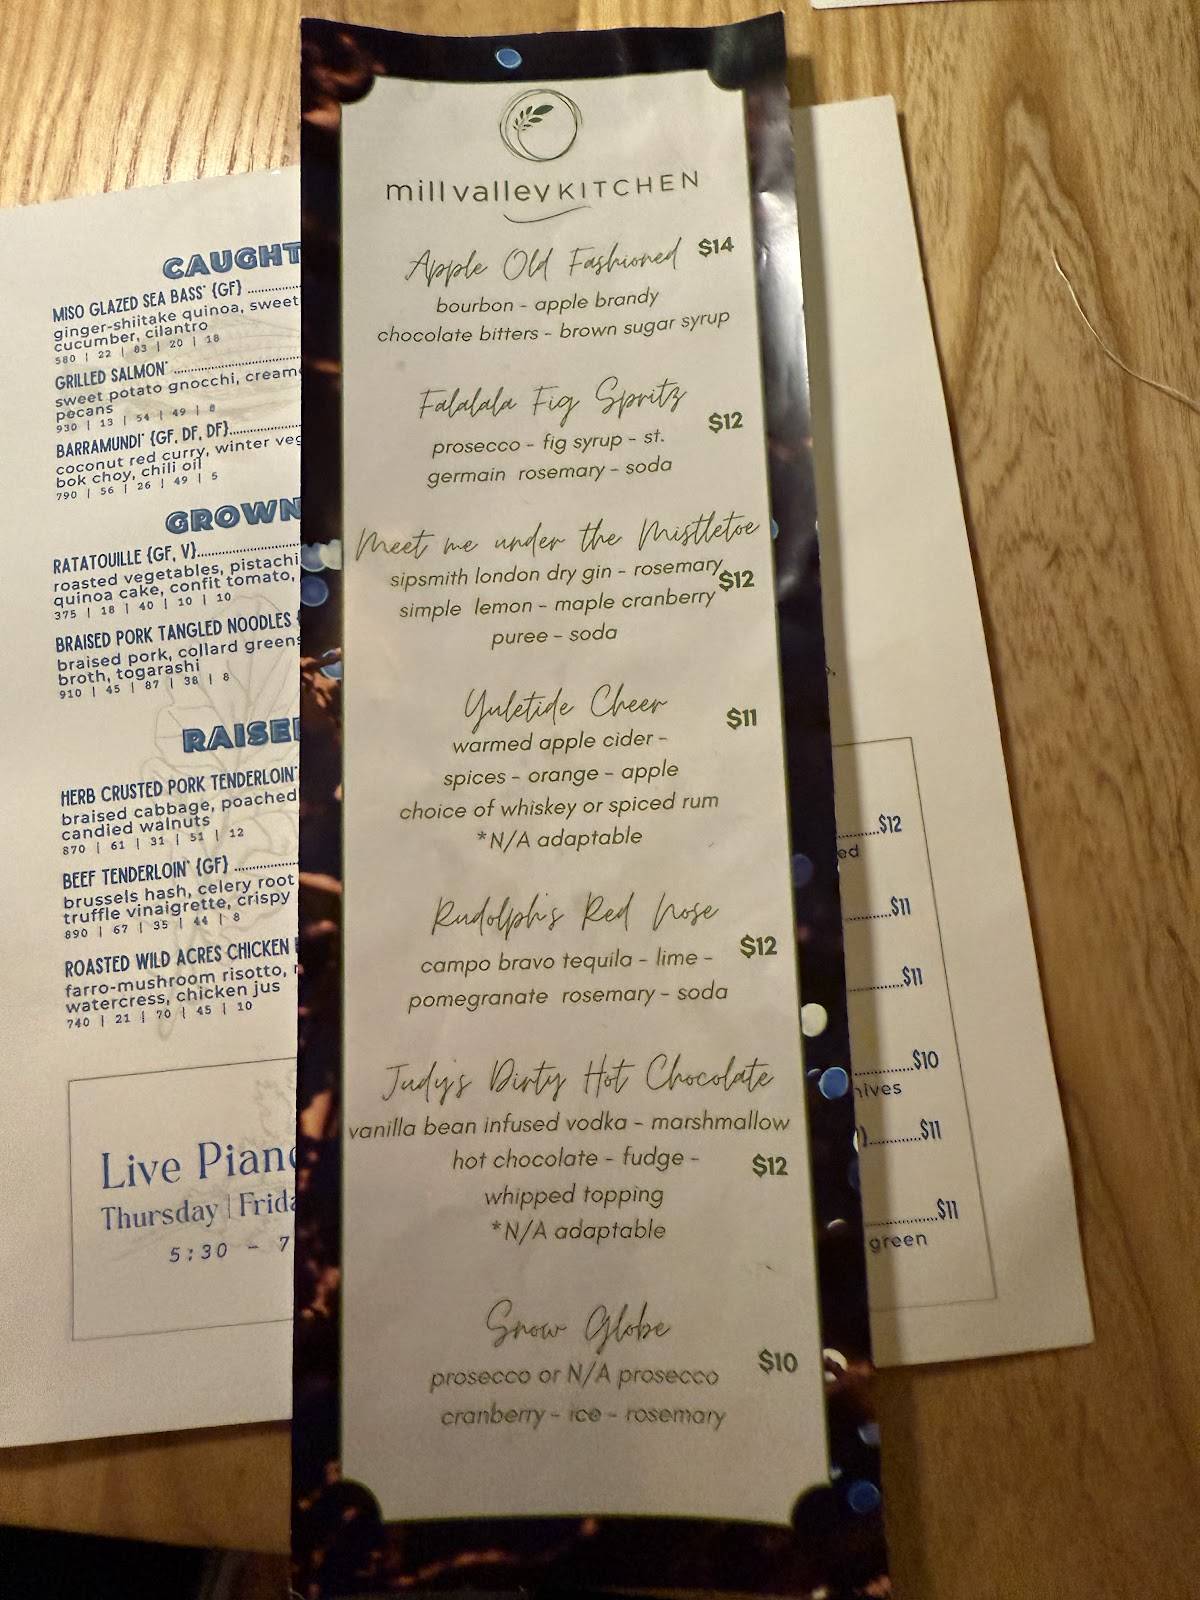 mill valley KITCHEN
Apple Old Fashioned $14
bourbon - apple brandy
chocolate bitters - brown sugar syrup
Falalala Fig Spritz
$12
prosecco - fig syrup - st.
germain rosemary - soda
Meet me under the Mistletoe
sipsmith london dry gin - rosemary
$12
simple lemon - maple cranberry
puree - soda
Yuletide Cheer
$11
warmed apple cider -
spices - orange - apple
choice of whiskey or spiced rum
*N/A adaptable
Rudolph's Red Nose
$12
campo bravo tequila - lime -
pomegranate rosemary - soda
Judy's Dirty Hot Chocolate
vanilla bean infused vodka - marshmallow
hot chocolate - fudge -
$12
whipped topping
*N/A adaptable
Snow Globe
$10
prosecco or N/A prosecco
cranberry - ice - rosemary
CAUGHT
MISO GLAZED SEA BASS* {GF}
ginger-shiitake quinoa, sweet
cucumber, cilantro
580 | 22 | 83 | 20 | 18
GRILLED SALMON*
sweet potato gnocchi, cream
pecans
930 | 13 | 54 | 49 | 8
BARRAMUNDI* {GF, DF, DF}
coconut red curry, winter veg
bok choy, chili oil
790 | 56 | 26 | 49 | 5
GROWN
RATATOUILLE {GF, V}
roasted vegetables, pistachi
quinoa cake, confit tomato,
375 | 18 | 40 | 10 | 10
BRAISED PORK TANGLED NOODLES {
braised pork, collard greens
broth, togarashi
910 | 45 | 87 | 38 | 8
RAISE
HERB CRUSTED PORK TENDERLOIN*
braised cabbage, poached
candied walnuts
870 | 61 | 31 | 51 | 12
BEEF TENDERLOIN* {GF}
brussels hash, celery root
truffle vinaigrette, crispy
890 | 67 | 35 | 44 | 8
ROASTED WILD ACRES CHICKEN
farro-mushroom risotto,
watercress, chicken jus
740 | 21 | 70 | 45 | 10
Live Piano
Thursday | Frida
5:30 - 7
$12
ed
$11
$11
$10
hives
$11
$11
green